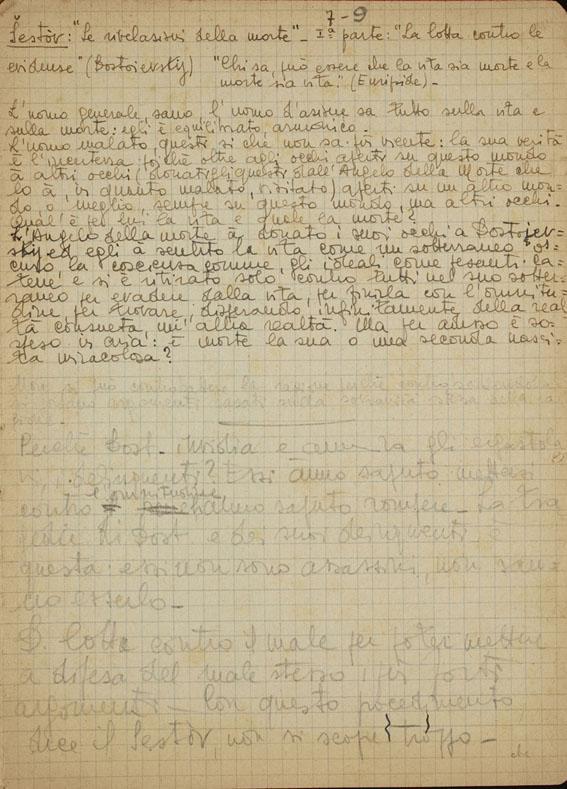 7-9
Šestòv: "Le rivelazioni della morte" - Iª parte: "La lotta contro le
evidenze" (Dostoievsky) "Chi sa, può essere che la vita sia morte e la
morte sia vita." (Euripide) -
L'uomo generale, sano, l'uomo d'azione sa tutto sulla vita e
sulla morte: egli è equilibrato, armonico.
L'uomo malato, questi sì che non sa più niente: la sua verità
è l'incertezza poiché oltre agli occhi aperti su questo mondo
à altri occhi (donatigli questi dall'Angelo della Morte che
lo à, in quanto malato, visitato) aperti su un altro mon-
do, o meglio, sempre su questo mondo, ma altri occhi.
Qual'è per lui la vita e quale la morte?
L'Angelo della morte à donato i suoi occhi a Dostojev-
sky ed egli à sentito la vita come un sotterraneo os-
curo, la coscienza comune, gli ideali come pesanti ca-
tene, e si è ritirato solo, contro tutti nel suo sotter-
raneo per evadere dalla vita, per finirla con l'omnitu-
dine, per trovare, disperando infinitamente della real
tà consueta, un'altra realtà. Ma per adesso è so-
speso in aria: è morte la sua o una seconda nasci-
ta miracolosa?
Non si può contraddire la ragione
Perché Dost. invidia e ammira gli ergastola
ni, i delinquenti? Essi ànno saputo mettersi
l'omnitudine
contro e ànno saputo rompere. La tra
gedia di Dost. e dei suoi delinquenti è
questa: essi non sono assassini, non san-
no esserlo -
D. lotta contro il male per poter mettere
a difesa del male stesso i più forti
argomenti - Con questo procedimento
dice il Šestòv, non si scopre troppo -
che